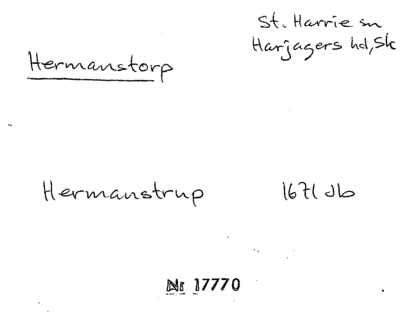 St. Harrie sn
Harjagers hd, Sk
Hermanstorp
Hermanstrup 1671 Jb
Nr 17770